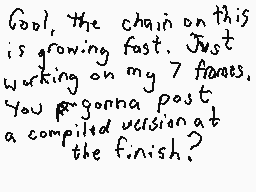 Cool, the chain on this
is growing fast. Just
working on my 7 frames.
You gonna post
a compiled version at
the finish?